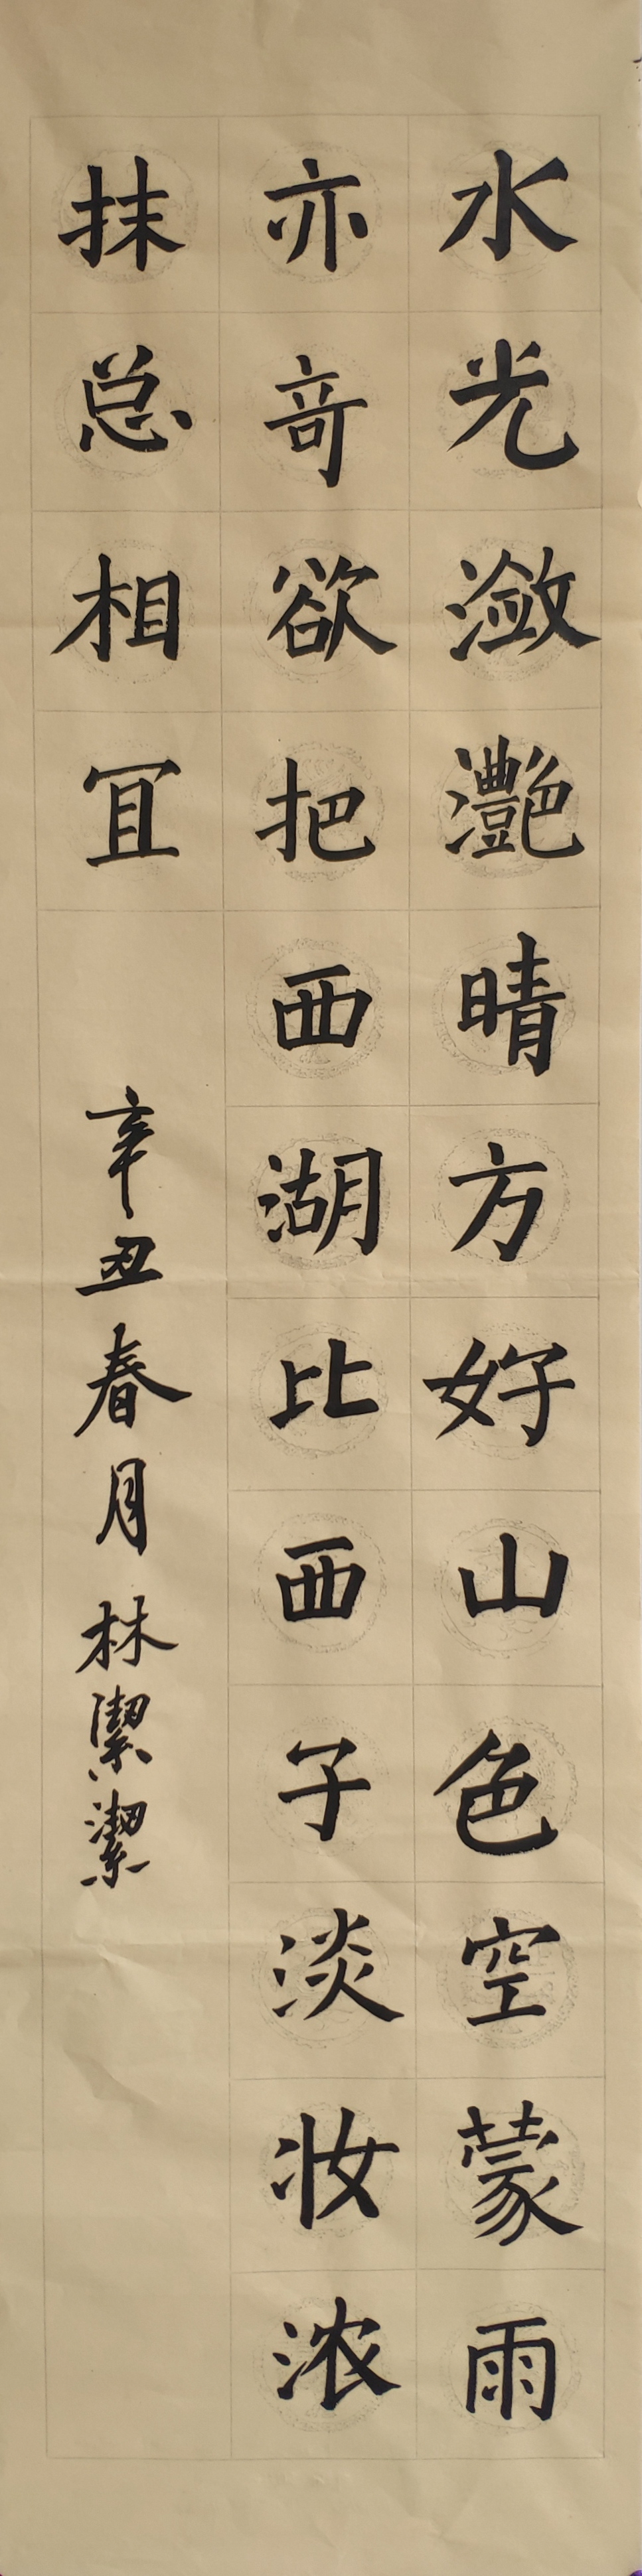 水光潋滟晴方好山色空蒙雨
亦奇欲把西湖比西子淡妆浓
抹总相冝
辛丑春月林潔潔